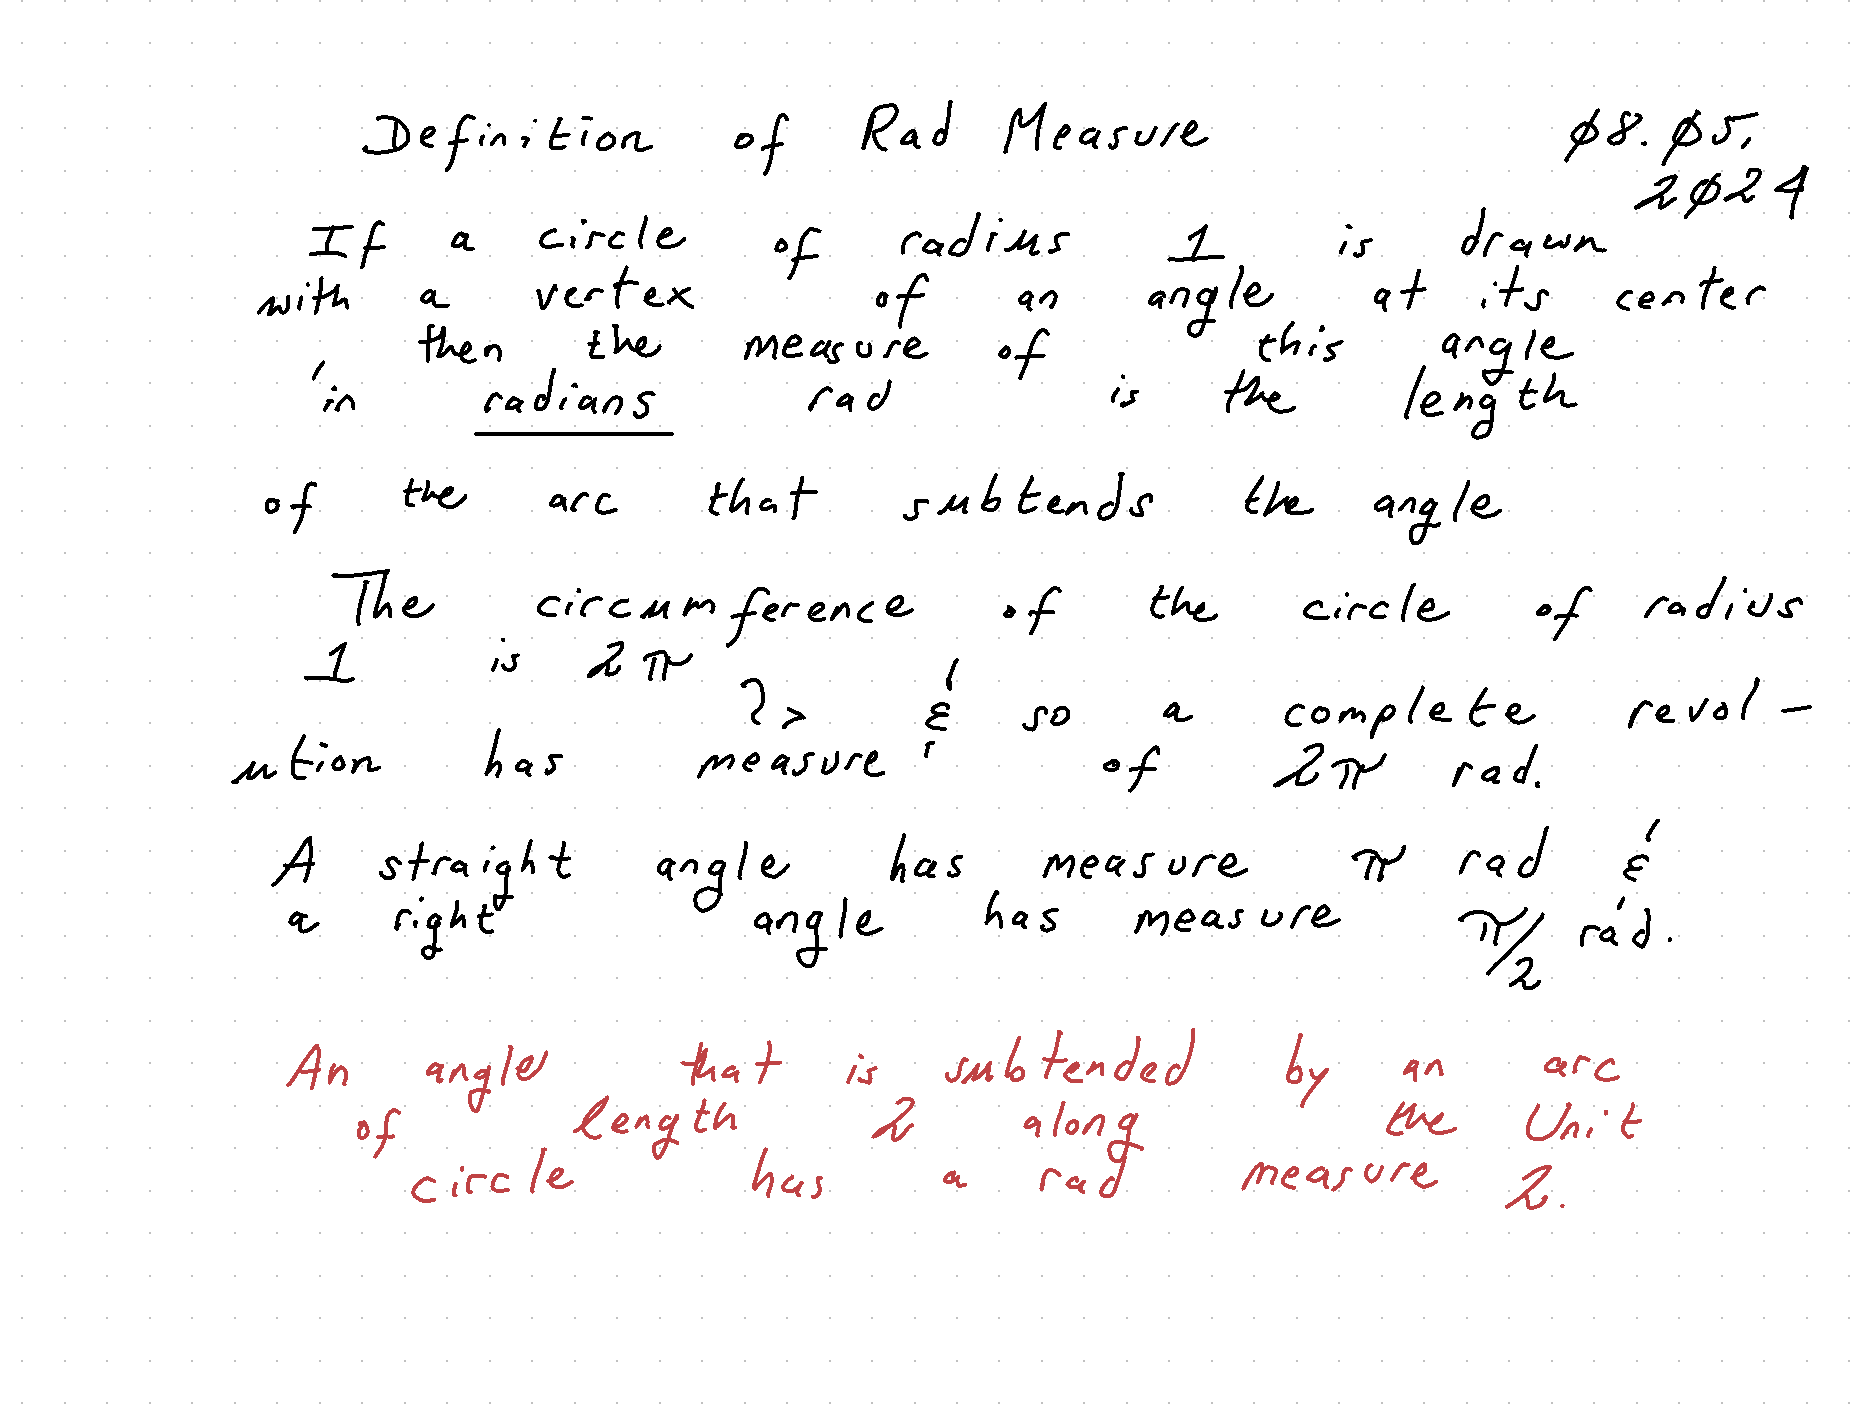 Definition of Rad Measure
Ø8. Ø5,
2Ø24
If a circle of radius 1 is drawn
with a vertex of an angle at its center
then the measure of this angle
in radians rad is the length
of the arc that subtends the angle
The circumference of the circle of radius
1 is 2π
& so a complete revol-
ution has measure of 2π rad.
A straight angle has measure π rad &
a right angle has measure π/2 rad.
An angle that is subtended by an arc
of length 2 along the Unit
circle has a rad measure 2.